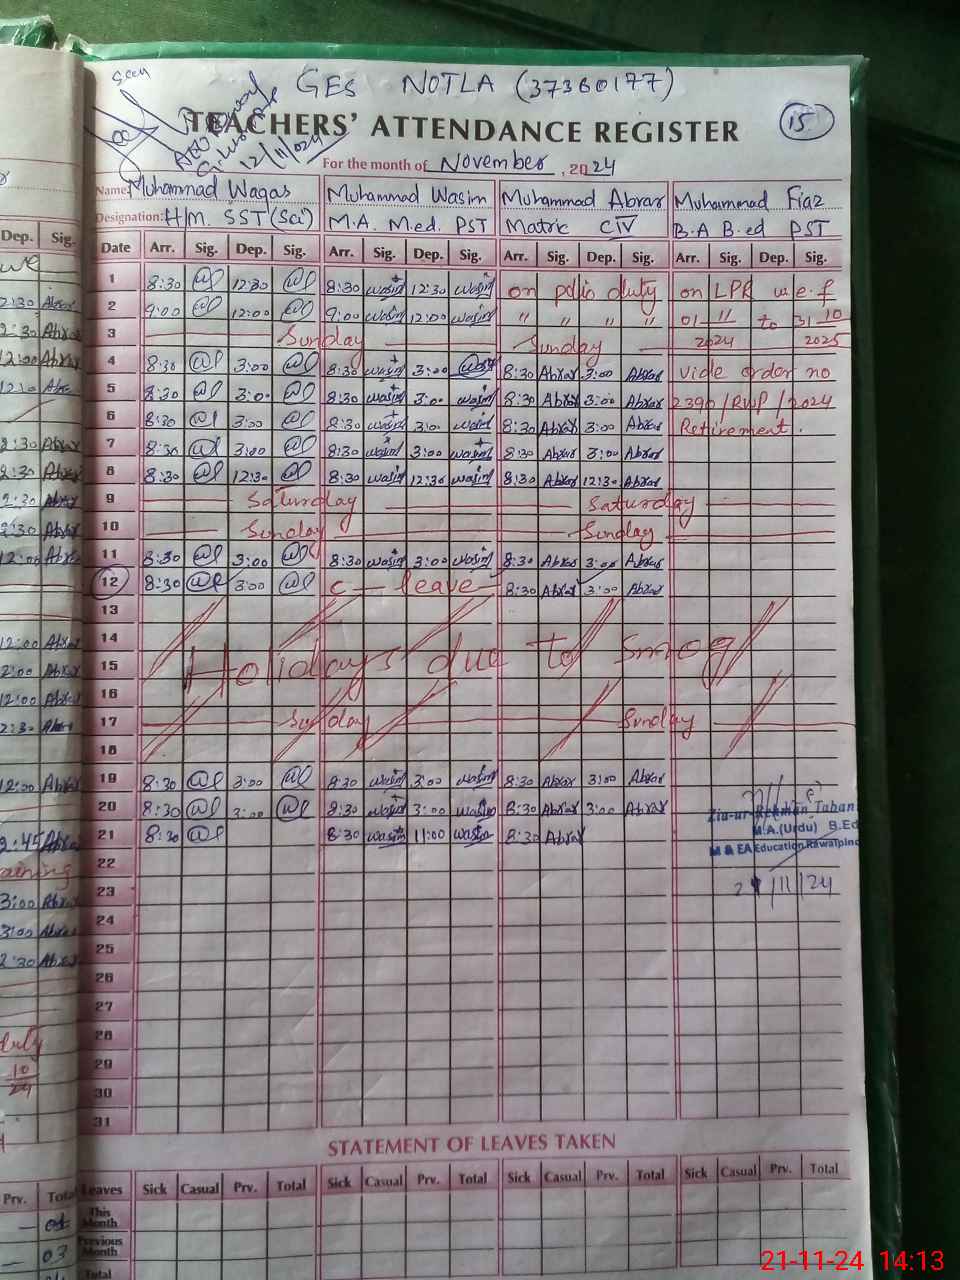 seen
GES NOTLA (37360177)
TEACHERS' ATTENDANCE REGISTER
15
12/11/024
For the month of November, 2024
Name: Muhammad Waqas Muhammad Wasim Muhammad Abrar Muhammad Fiaz
Designation: H/M. SST (Sci) M.A. M.ed. PST Matric CIV B.A B.ed PST
Date Arr. Sig. Dep. Sig. Arr. Sig. Dep. Sig. Arr. Sig. Dep. Sig. Arr. Sig. Dep. Sig.
1 8:30 12:30 8:30 wasim 12:30 wasim on polio duty on LPR w.e.f
2 9:00 12:00 9:00 wasim 12:00 wasim " " " " 01-11-2024 to 31-10-2025
3 Sunday Sunday
4 8:30 3:00 8:30 wasim 3:00 wasim 8:30 Abrar 3:00 Abrar vide order no
5 8:30 3:00 8:30 wasim 3:00 wasim 8:30 Abrar 3:00 Abrar 2390/RWP/2024
6 8:30 3:00 8:30 wasim 3:00 wasim 8:30 Abrar 3:00 Abrar Retirement.
7 8:30 3:00 8:30 wasim 3:00 wasim 8:30 Abrar 3:00 Abrar
8 8:30 12:30 8:30 wasim 12:30 wasim 8:30 Abrar 12:30 Abrar
9 Saturday Saturday
10 Sunday Sunday
11 8:30 3:00 8:30 wasim 3:00 wasim 8:30 Abrar 3:00 Abrar
12 8:30 3:00 c - leave 8:30 Abrar 3:00 Abrar
13
14
15 Holidays due to smog
16
17 Sunday Sunday
18
19 8:30 3:00 8:30 wasim 3:00 wasim 8:30 Abrar 3:00 Abrar
20 8:30 3:00 8:30 wasim 3:00 wasim 8:30 Abrar 3:00 Abrar
21 8:30 8:30 wasim 11:00 wasim 8:30 Abrar
Zia-ur-Rehman Taban
M.A.(Urdu) B.Ed
M & EA Education Rawalpind
21/11/24
22
23
24
25
26
27
28
29
30
31
STATEMENT OF LEAVES TAKEN
Leaves Sick Casual Prv. Total Sick Casual Prv. Total Sick Casual Prv. Total Sick Casual Prv. Total
This Month
Previous Month
Total
21-11-24 14:13